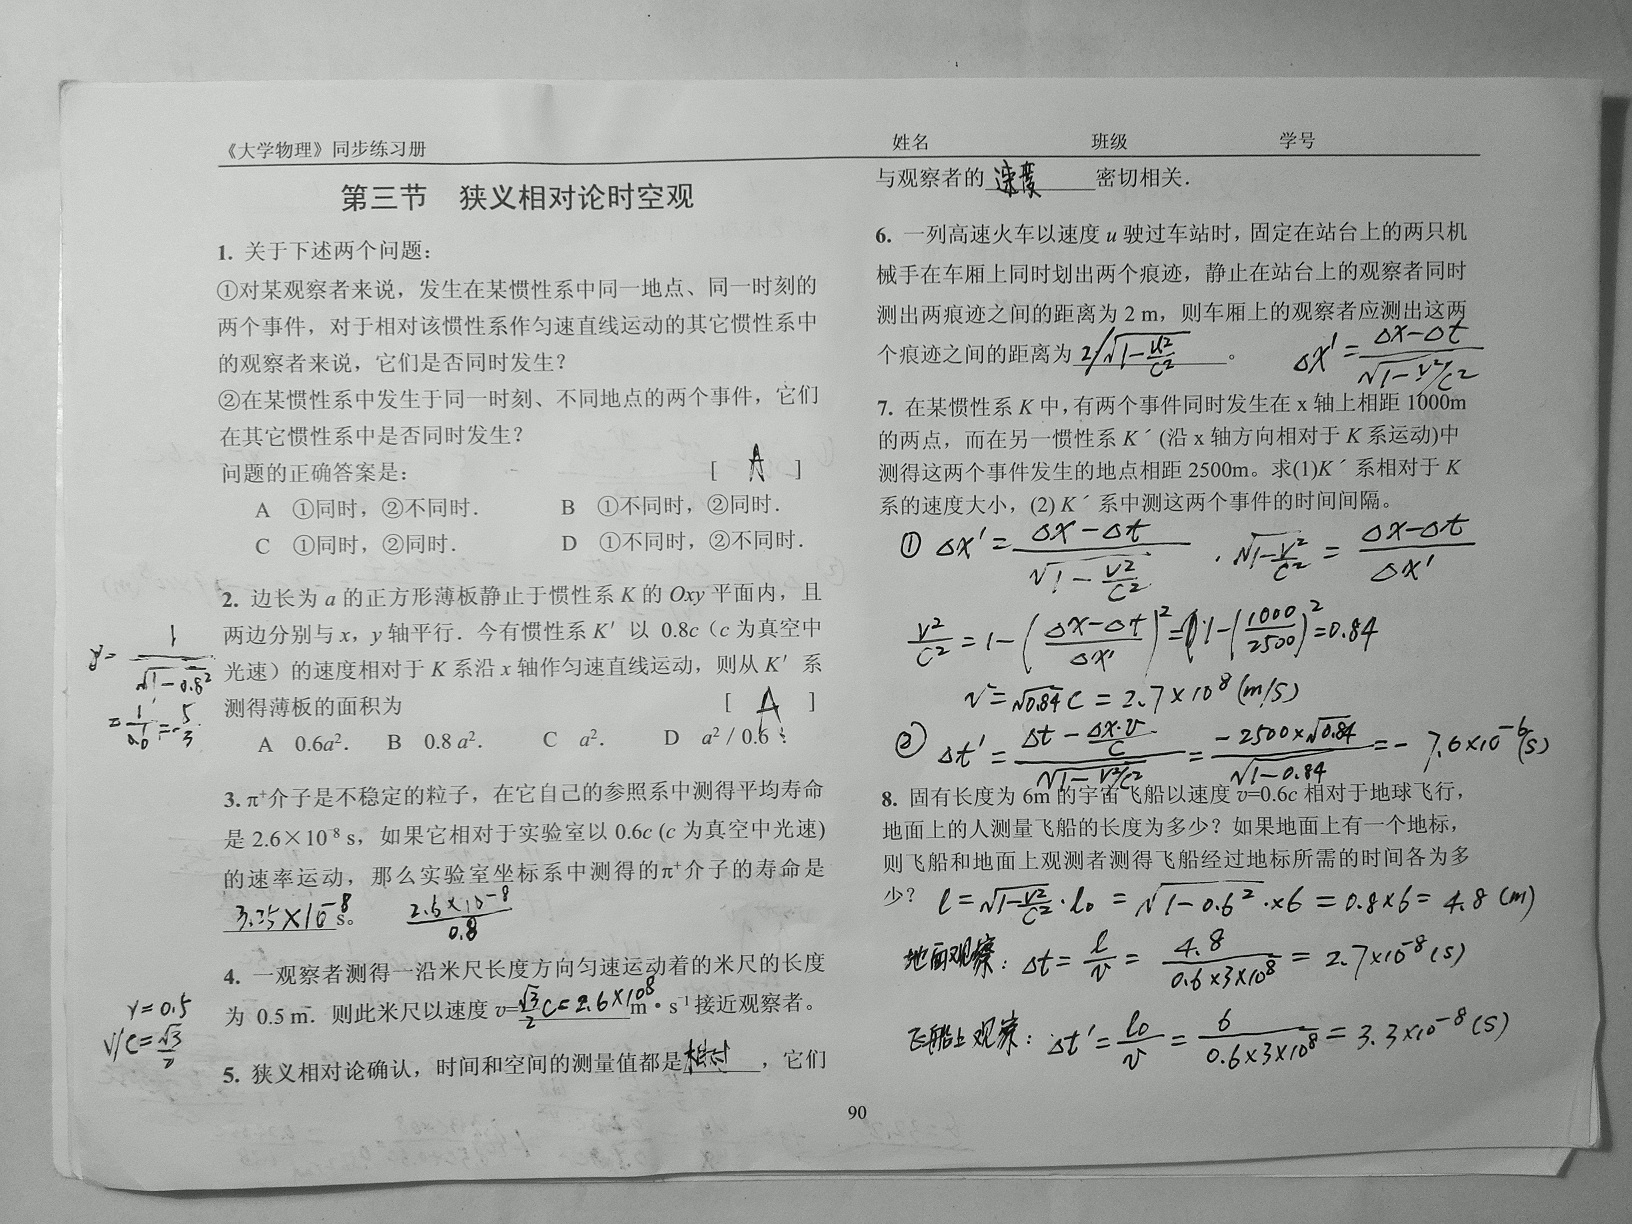 《大学物理》同步练习册
姓名 班级 学号
第三节 狭义相对论时空观
1. 关于下述两个问题：
①对某观察者来说，发生在某惯性系中同一地点、同一时刻的
两个事件，对于相对该惯性系作匀速直线运动的其它惯性系中
的观察者来说，它们是否同时发生？
②在某惯性系中发生于同一时刻、不同地点的两个事件，它们
在其它惯性系中是否同时发生？
问题的正确答案是： [ A ]
A ①同时，②不同时. B ①不同时，②同时.
C ①同时，②同时. D ①不同时，②不同时.
2. 边长为 a 的正方形薄板静止于惯性系 K 的 Oxy 平面内，且
两边分别与 x，y 轴平行．今有惯性系 K′ 以 0.8c（c 为真空中
光速）的速度相对于 K 系沿 x 轴作匀速直线运动，则从 K′ 系
测得薄板的面积为 [ A ]
A 0.6a². B 0.8 a². C a². D a² / 0.6 .
γ= 1/√1-0.8²
= 1/0.6 = 5/3
3. π⁺介子是不稳定的粒子，在它自己的参照系中测得平均寿命
是 2.6×10⁻⁸ s，如果它相对于实验室以 0.6c (c 为真空中光速)
的速率运动，那么实验室坐标系中测得的π⁺介子的寿命是
3.25×10⁻⁸ s。 2.6×10⁻⁸/0.8
4. 一观察者测得一沿米尺长度方向匀速运动着的米尺的长度
为 0.5 m．则此米尺以速度 v=√3/2 c=2.6×10⁸ m·s⁻¹接近观察者。
γ=0.5
v/c=√3/2
5. 狭义相对论确认，时间和空间的测量值都是相对，它们
与观察者的 速度 密切相关.
6. 一列高速火车以速度 u 驶过车站时，固定在站台上的两只机
械手在车厢上同时划出两个痕迹，静止在站台上的观察者同时
测出两痕迹之间的距离为 2 m，则车厢上的观察者应测出这两
个痕迹之间的距离为 2/√1-u²/c² 。 Δx′= Δx-Δt/√1-v²/c²
7. 在某惯性系 K 中，有两个事件同时发生在 x 轴上相距 1000m
的两点，而在另一惯性系 K´ (沿 x 轴方向相对于 K 系运动)中
测得这两个事件发生的地点相距 2500m。求(1)K´ 系相对于 K
系的速度大小，(2) K´ 系中测这两个事件的时间间隔。
① Δx′= Δx-Δt/√1-v²/c² . √1-v²/c² = Δx-Δt/Δx′
v²/c² = 1-(Δx-Δt/Δx′)² = 1-(1000/2500)² =0.84
v=√0.84 c = 2.7×10⁸ (m/s)
② Δt′= Δt-Δx·v/c/√1-v²/c² = -2500×√0.84/√1-0.84 =- 7.6×10⁻⁶(s)
8. 固有长度为 6m 的宇宙飞船以速度 v=0.6c 相对于地球飞行，
地面上的人测量飞船的长度为多少？如果地面上有一个地标，
则飞船和地面上观测者测得飞船经过地标所需的时间各为多
少？ l=√1-v²/c²·l₀ = √1-0.6²·×6 = 0.8×6= 4.8 (m)
地面观察：Δt= l/v = 4.8/0.6×3×10⁸ = 2.7×10⁻⁸ (s)
飞船上观察：Δt′= l₀/v = 6/0.6×3×10⁸ = 3.3×10⁻⁸ (s)
90